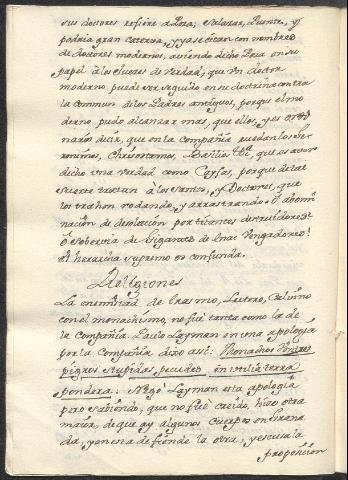 sus doctores refiere a Poza, Salazar, Puente, y
podria gran caterva, y ya se citan con nombre
de doctores modernos, aviendo dicho Poza en su
papel à los Eluces de verdad, que un doctor
moderno puede ser seguido en su doctrina contra
la comun de los Padres antiguos, porque el mo
derno pudo alcanzar mas, que ellos, y es ordi
nario decir, que en la Compañia ruedan los Ge
ronimos, Chrisostomos, Basilios &c. que es aver
dicho una verdad como
suerte tratan à los Santos, y Doctores, que
los trahen rodando, y arrastrando. O abomi
nacion de desolacion por titanes destruidores!
ò sobervia de Gigantes de
El Herarcha supremo os confunda.
Religiones
La enemistad de Erasmo, Lutero, Calvino
con el monachismo, no fuè tanta como la de
la Compañia. Paulo Layman en una apologia
por la Compañia dixo assi: Monachos
pigros stupidos, pecudes inutilia terræ
pondera. Negò Layman esta apologia
pero sabiendo, que no fuè creido, hizo otra
maior, de que ay algunos cuerpos en Grana
da, y en esta defiende la otra, y escusa la
proposicion